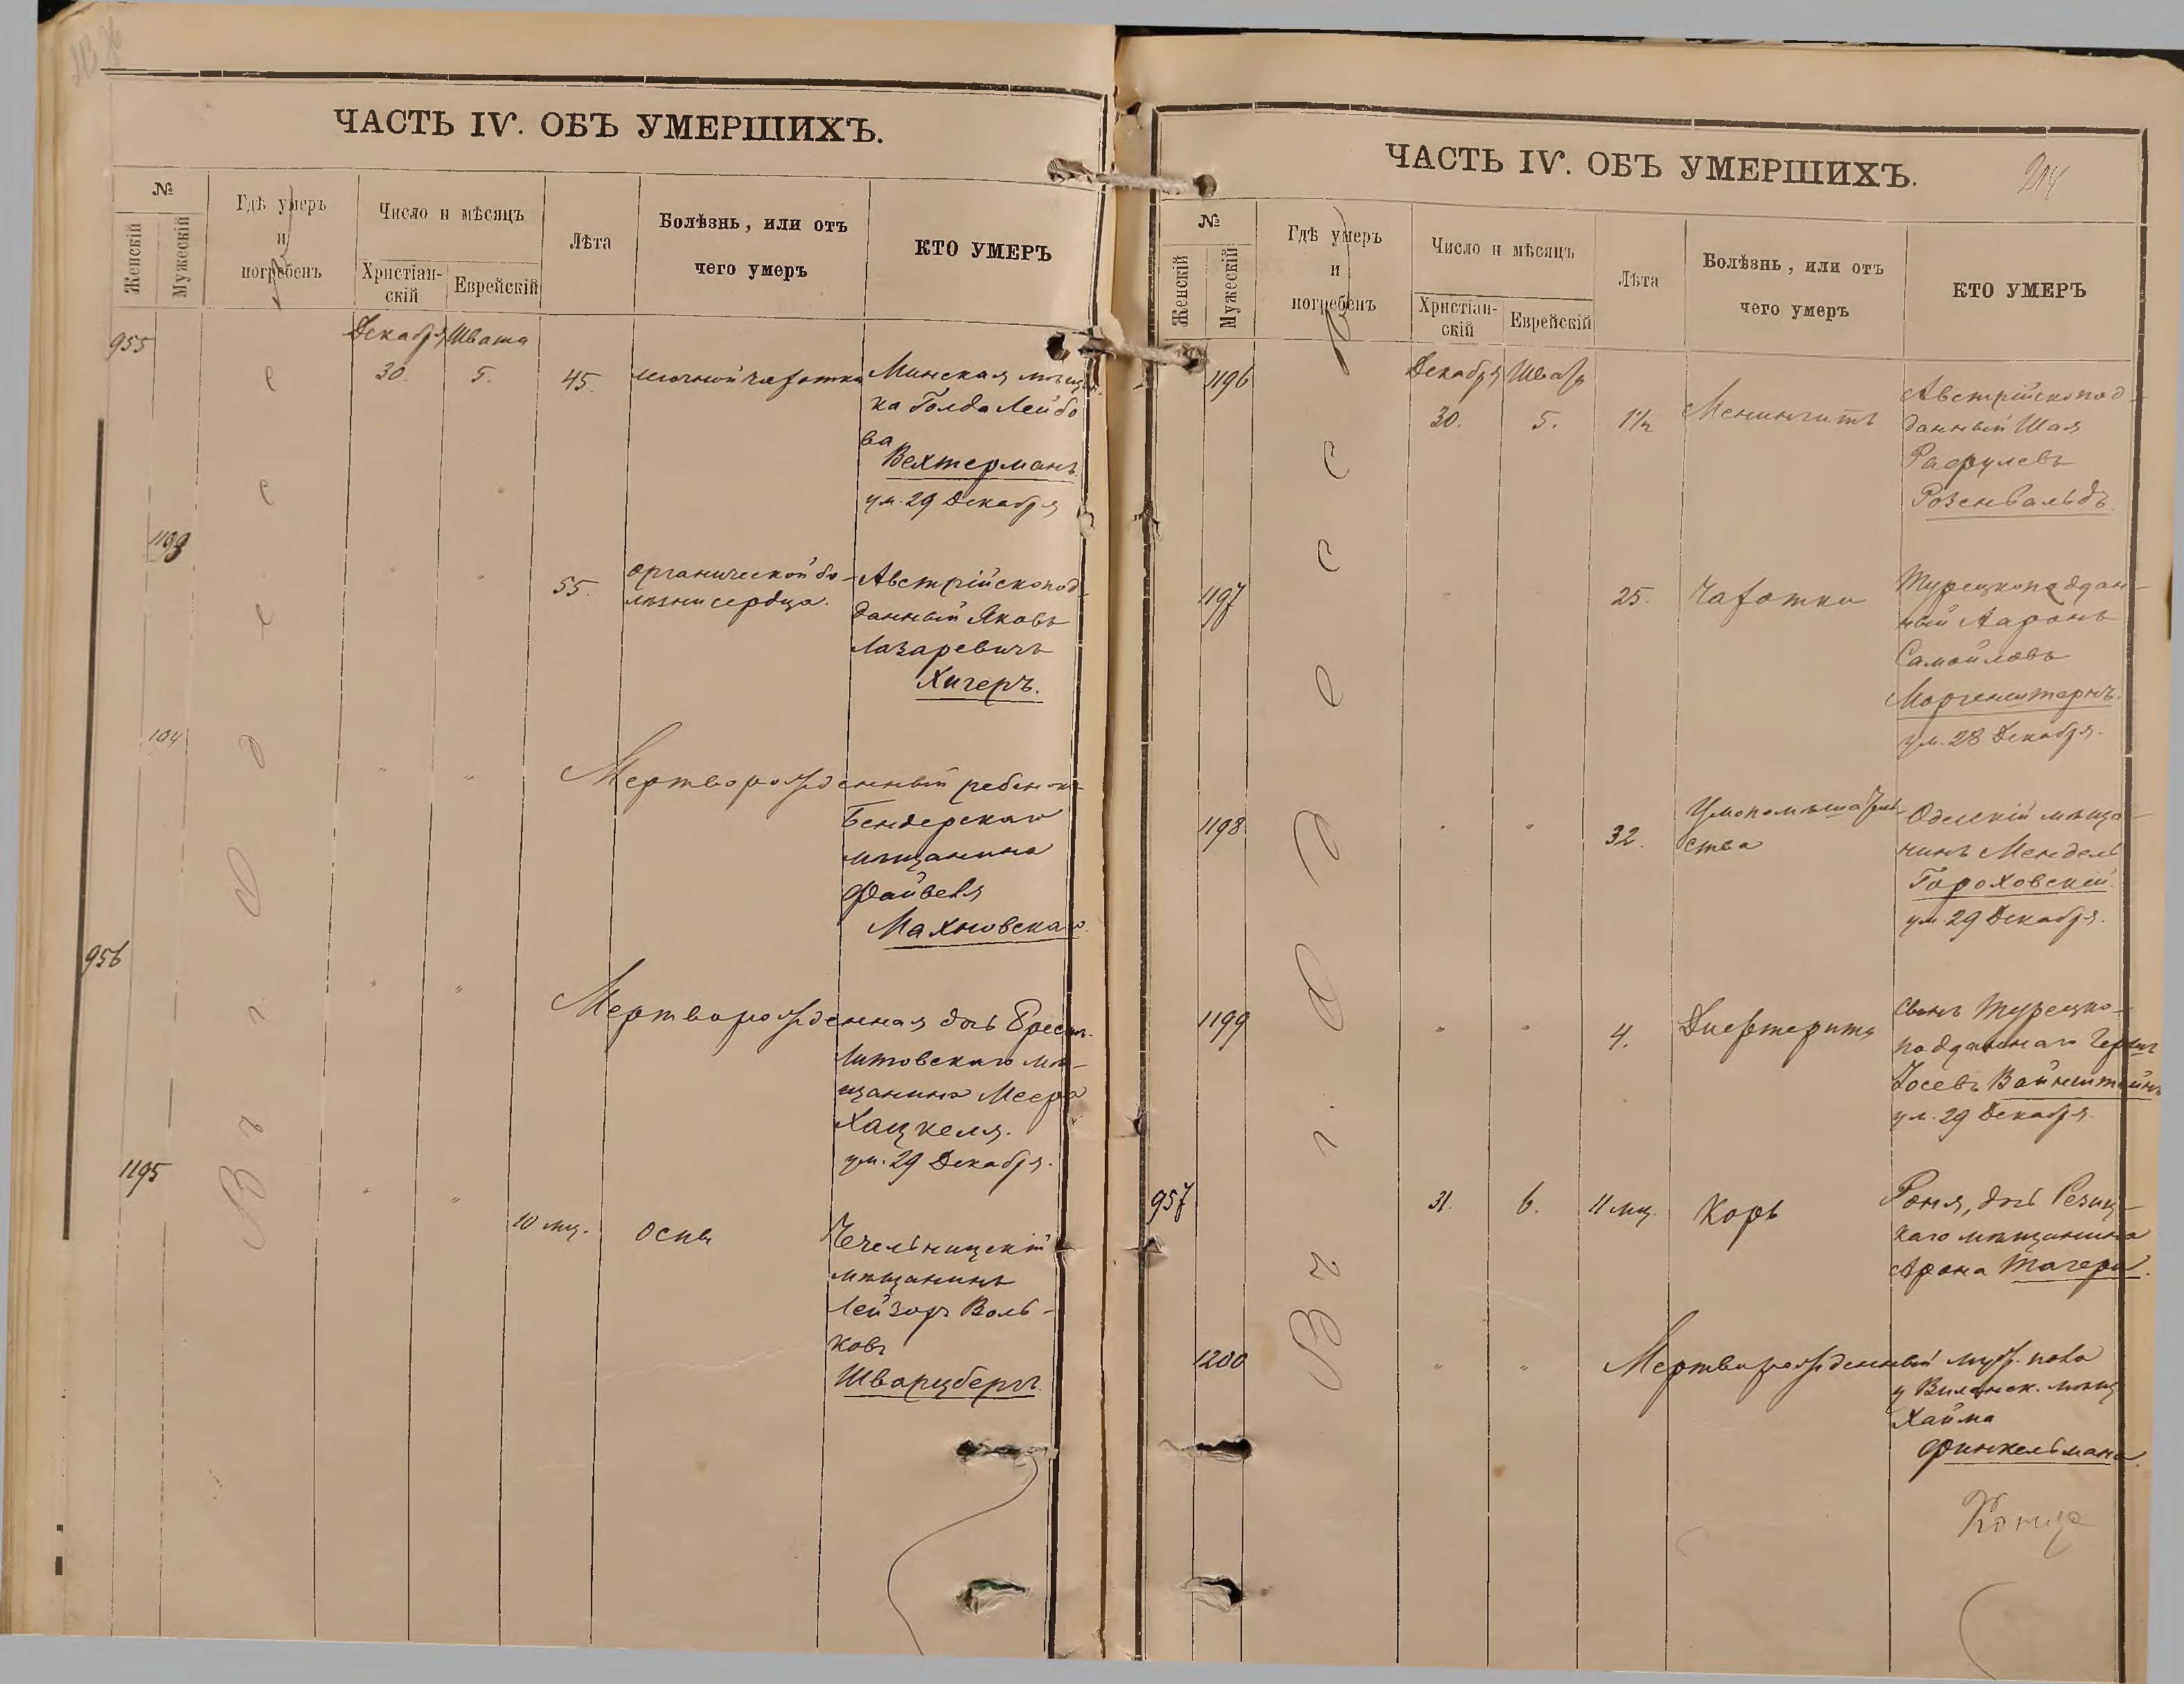 ЧАСТЬ IV. ОБЪ УМЕРШИХЪ.
№
Женскій
Мужескій
Гдѣ умеръ
и
погребенъ
Число и мѣсяцъ
Христіан-
скій
Еврейскій
Лѣта
Болѣзнь, или отъ
чего умеръ
КТО УМЕРЪ
Въ г. Одессѣ
955
Декабря Швата
30. 5. 45. легочной чахотки Минская мѣщан
ка Голда Лейбо
ва
Вехтерманъ
ум. 29 Декабря
1193
55. органической бо-
лѣзни сердца.
Австрійскопод-
данный Яковъ
Лазаревичъ
Хигеръ.
194
" " Мертворожденный ребенокъ
Бендерскаго
мѣщанина
Файвеля
Махновскаго
956
" " Мертворожденная дочь Брест.
Литовскаго мѣ-
щанина Меера
Хацкеля.
ум. 29 Декабря.
1195
" " 10 мц. оспы Чечельницкій
мѣщанинъ
Лейзоръ Воль-
ковъ
Шварцбергъ.
ЧАСТЬ IV. ОБЪ УМЕРШИХЪ.
214
№
Женскій
Мужескій
Гдѣ умеръ
и
погребенъ
Число и мѣсяцъ
Христіан-
скій
Еврейскій
Лѣта
Болѣзнь, или отъ
чего умеръ
КТО УМЕРЪ
Въ г. Одессѣ
1196
Декабря
30. 5. 1½ Менингитъ
Австрійскопод-
данный Шая
Рафулевъ
Розенвальдъ.
1197
" " 25. Чахотки
Турецкоподдан-
ный Ааронъ
Самойловъ
Моргенштернъ.
ум. 28 Декабря.
1198
" " 32. Умопомѣшатель-
ства
Одесскій мѣща-
нинъ Мендель
Гороховскій.
ум. 29 Декабря.
1199
" " 4. Дифтерита
сынъ Турецко-
подданнаго
Іосевъ Вайнштейнъ
ум. 29 Декабря.
957
31. 6. 11 мц. Корь
Роня, дочь Резиц-
каго мѣщанина
Арона Тагера.
1200
" " Мертворожденный муж. пола
у Виленск. мѣщ.
Хайма
Финкельмана.
Конец